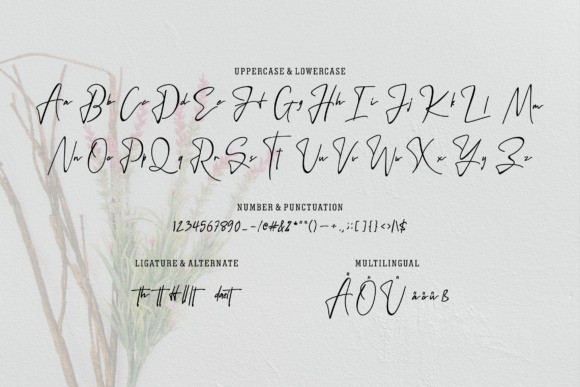 UPPERCASE & LOWERCASE
Aa Bb Cc Dd Ee Ff Gg Hh Ii Jj Kk Ll Mm
Nn Oo Pp Qq Rr Ss Tt Uu Vv Ww Xx Yy Zz
NUMBER & PUNCTUATION
1234567890_-/@#&%*""()—+.,;:[]{}<>|\$
LIGATURE & ALTERNATE
MULTILINGUAL